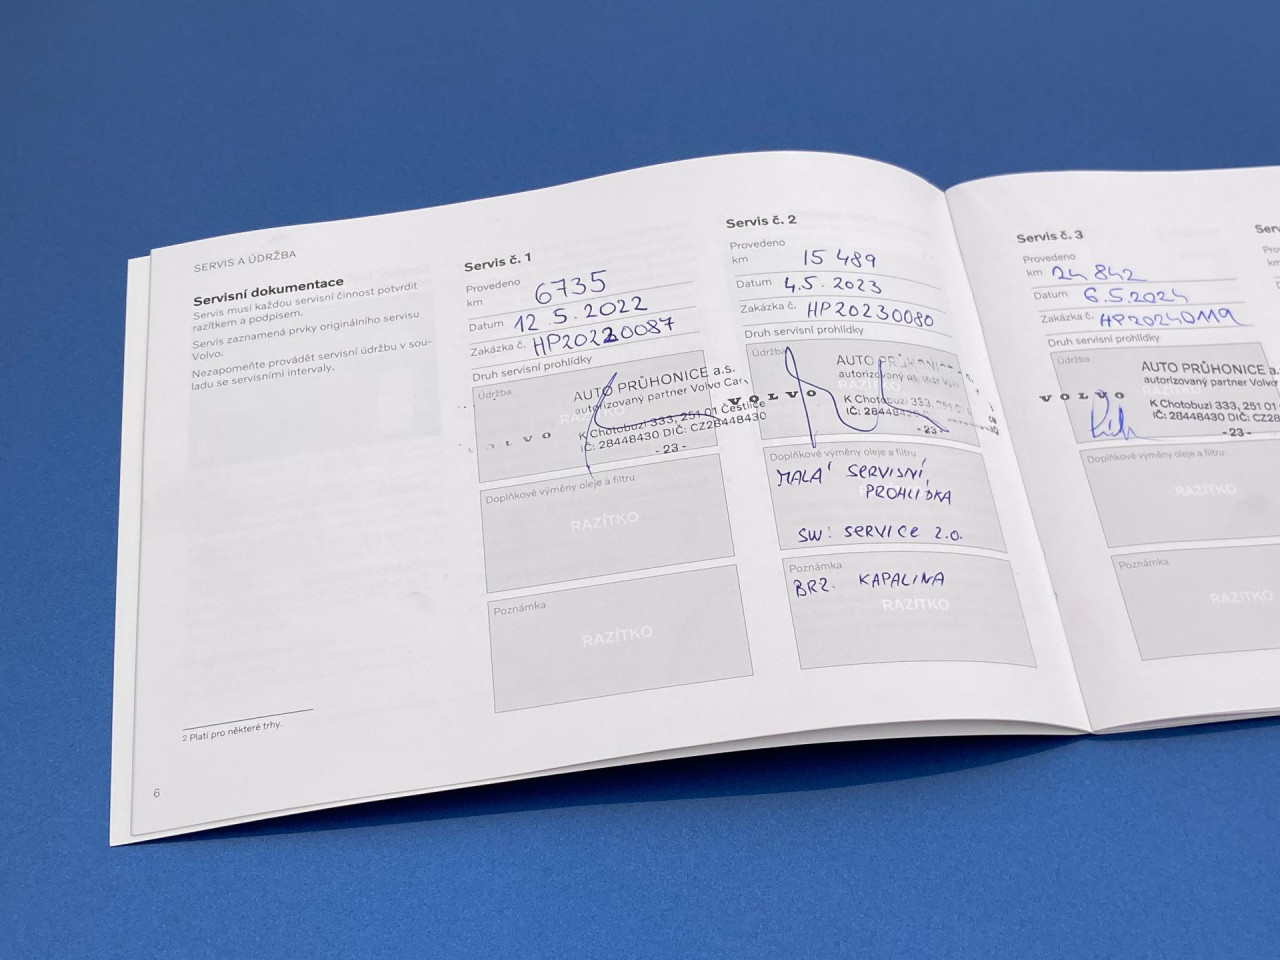 SERVIS A ÚDRŽBA
Servisní dokumentace
Servis musí každou servisní činnost potvrdit
razítkem a podpisem.
Servis zaznamená prvky originálního servisu
Volvo.
Nezapomeňte provádět servisní údržbu v sou-
ladu se servisními intervaly.
2 Platí pro některé trhy.
6
Servis č. 1
Provedeno
km 6735
Datum 12.5.2022
Zakázka č. HP20220087
Druh servisní prohlídky
Údržba
AUTO PRŮHONICE a.s.
autorizovaný partner Volvo Car
VOLVO
K Chotobuzi 333, 251 01 Čestlice
IČ: 28448430 DIČ: CZ28448430
- 23 -
Doplňkové výměny oleje a filtru
RAZÍTKO
Poznámka
RAZÍTKO
Servis č. 2
Provedeno
km 15 489
Datum 4.5.2023
Zakázka č. HP20230080
Druh servisní prohlídky
Údržba
AUTO PRŮHONICE
VOLVO
K Chotobuzi 333,
IČ: 28448430
- 23 -
Doplňkové výměny oleje a filtru
MALÁ SERVISNÍ
PROHLÍDKA
SW: SERVICE 2.0.
Poznámka
BRZ. KAPALINA
RAZÍTKO
Servis č. 3
Provedeno
km 24 842
Datum 6.5.2024
Zakázka č. HP20240119
Druh servisní prohlídky
Údržba
AUTO PRŮHONICE a.
autorizovaný partner Volvo
VOLVO
K Chotobuzi 333, 251 01
IČ: 28448430 DIČ:
- 23 -
Doplňkové výměny oleje a filtru
RAZÍTKO
Poznámka
RAZÍTKO